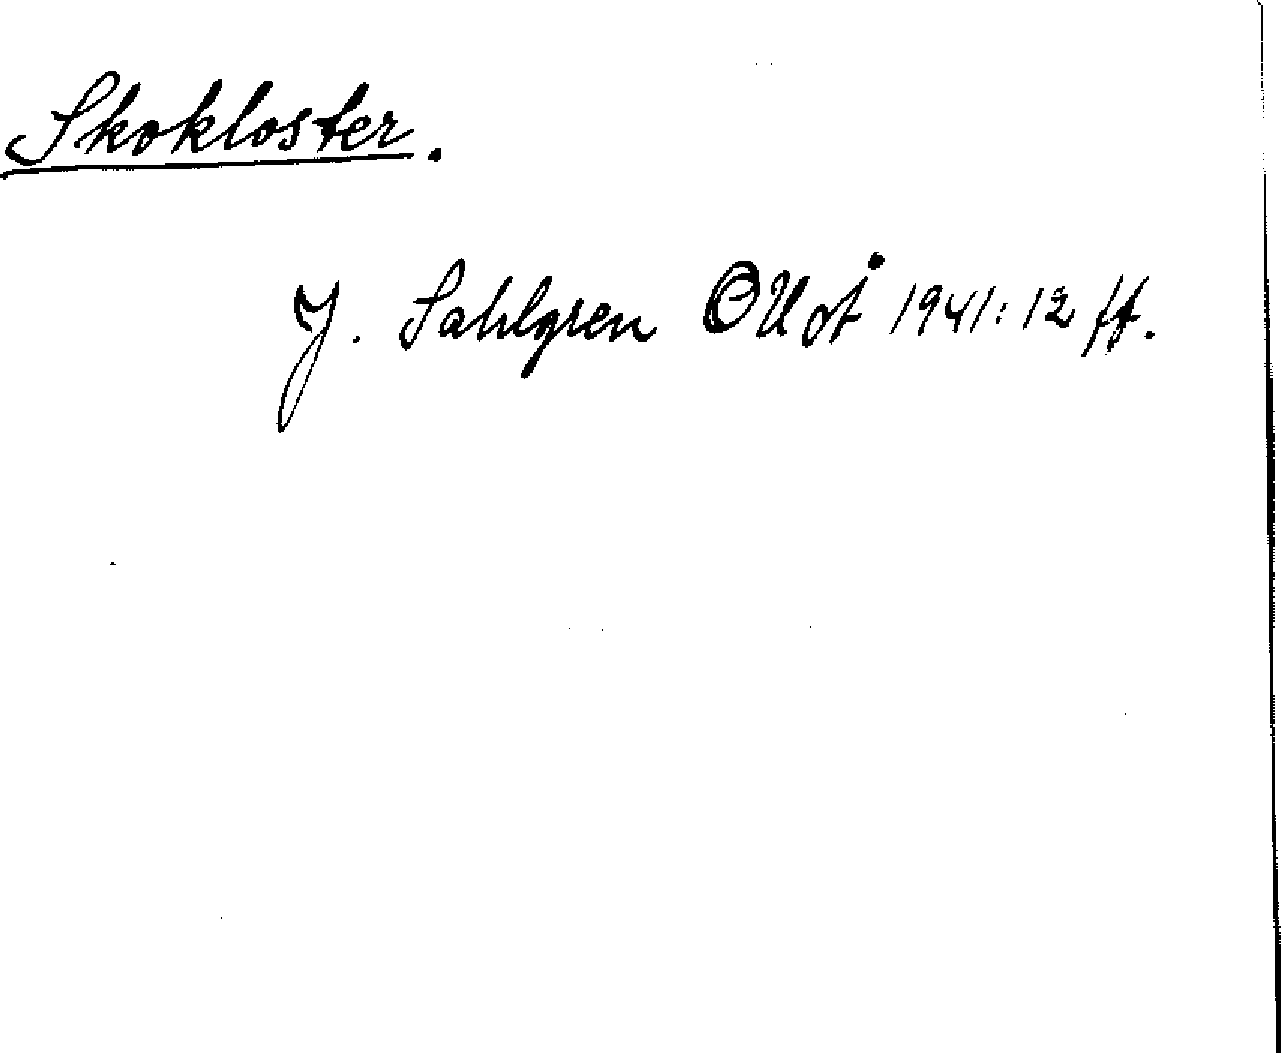 Skokloster.
J. Sahlgren OUoÅ 1941:12 ff.